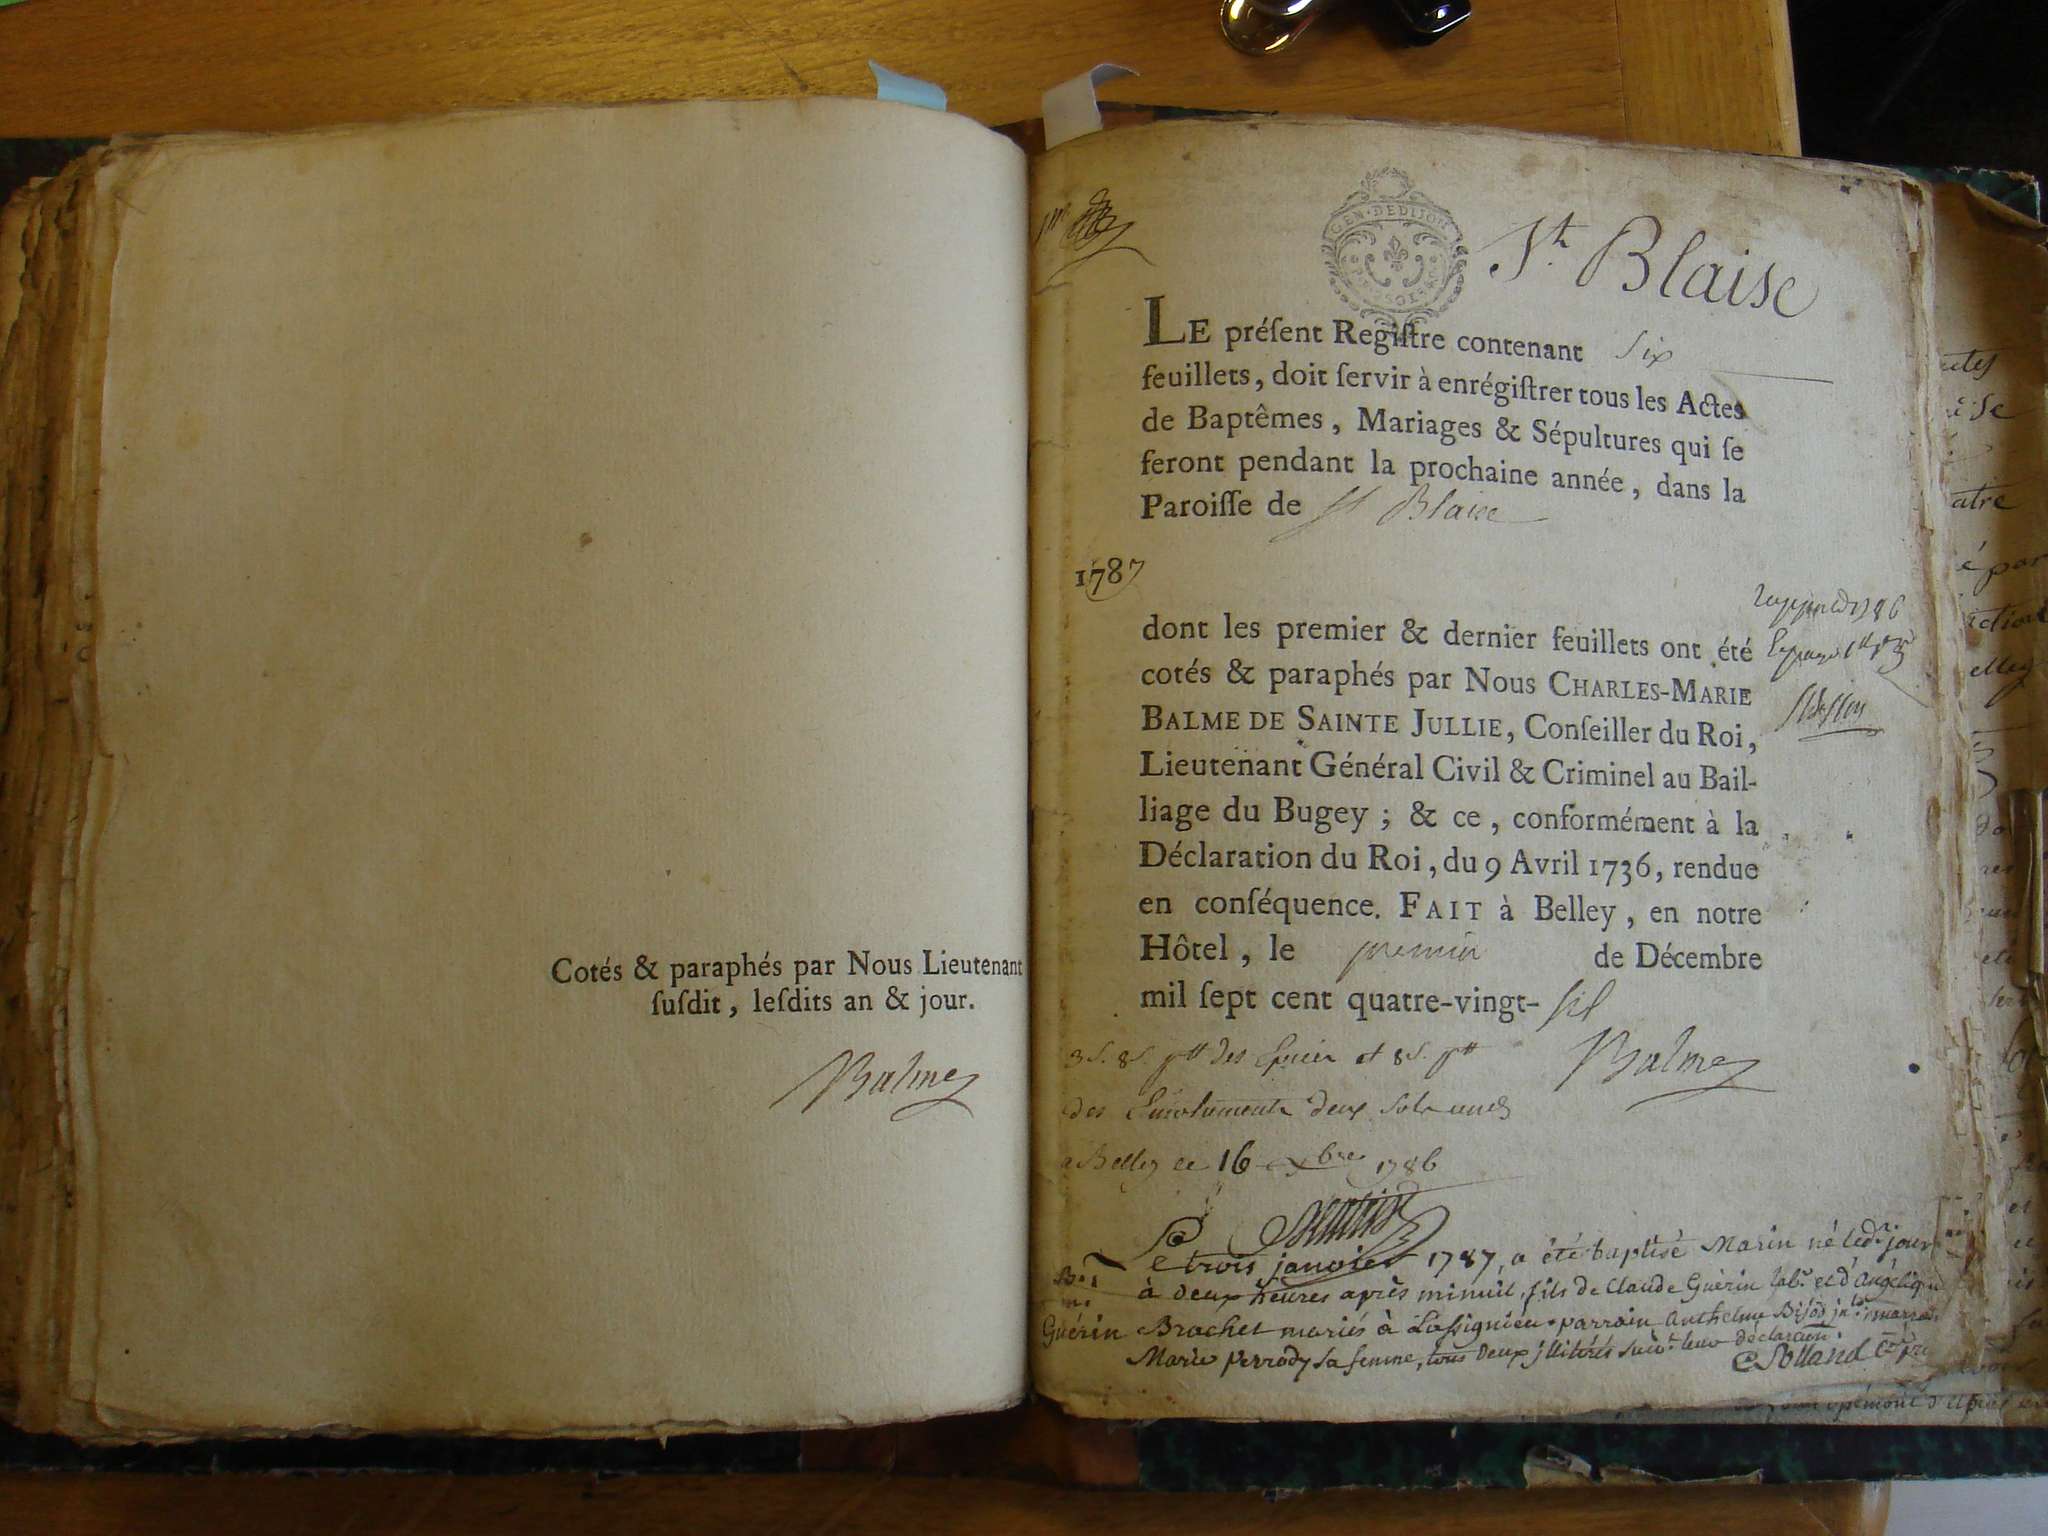 Cotés & paraphés par Nous Lieutenant
ſuſdit, leſdits an & jour.
Balme
1er
GEN. DE DIJON
St. Blaise
LE préſent Regiſtre contenant six
feuillets, doit ſervir à enrégiſtrer tous les Actes
de Baptêmes, Mariages & Sépultures qui ſe
feront pendant la prochaine année, dans la
Paroiſſe de St Blaise
1787
dont les premier & dernier feuillets ont été
cotés & paraphés par Nous CHARLES-MARIE
BALME DE SAINTE JULLIE, Conſeiller du Roi,
Lieutenant Général Civil & Criminel au Bail-
liage du Bugey; & ce, conformément à la
Déclaration du Roi, du 9 Avril 1736, rendue
en conſéquence. FAIT à Belley, en notre
Hôtel, le premier de Décembre
mil ſept cent quatre-vingt-six
Balme
3 s. 8 d. des et 8 s.
des Emoluments deux sols
a Belley ce 16 xbre 1786
Le trois janvier 1787, a été baptisé Marin né led. jour
à deux heures après minuit, fils de Claude Guérin lab. et d'Angélique
Guérin
Brochet mariés à Lassignieu. parrain Anthelme
Marie perrody sa femme, tous deux illitérés suiv. leur déclaration.
Rolland